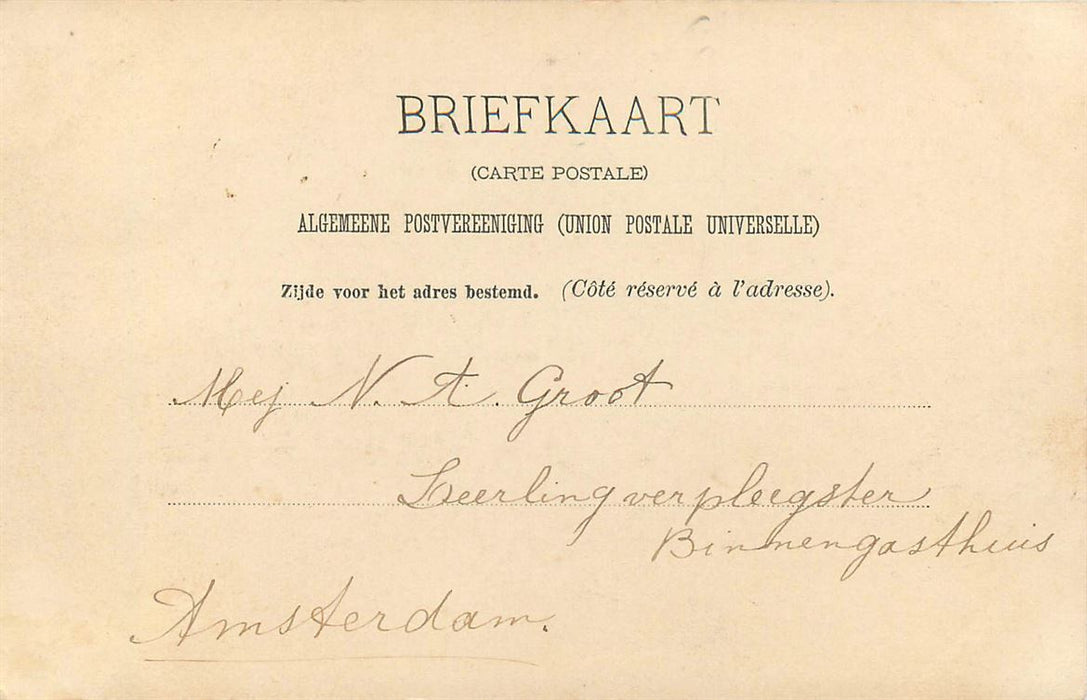 BRIEFKAART
(CARTE POSTALE)
ALGEMEENE POSTVEREENIGING (UNION POSTALE UNIVERSELLE)
Zijde voor het adres bestemd. (Côté réservé à l'adresse).
Mej N. A. Groot
Leerlingverpleegster
Binnengasthuis
Amsterdam.